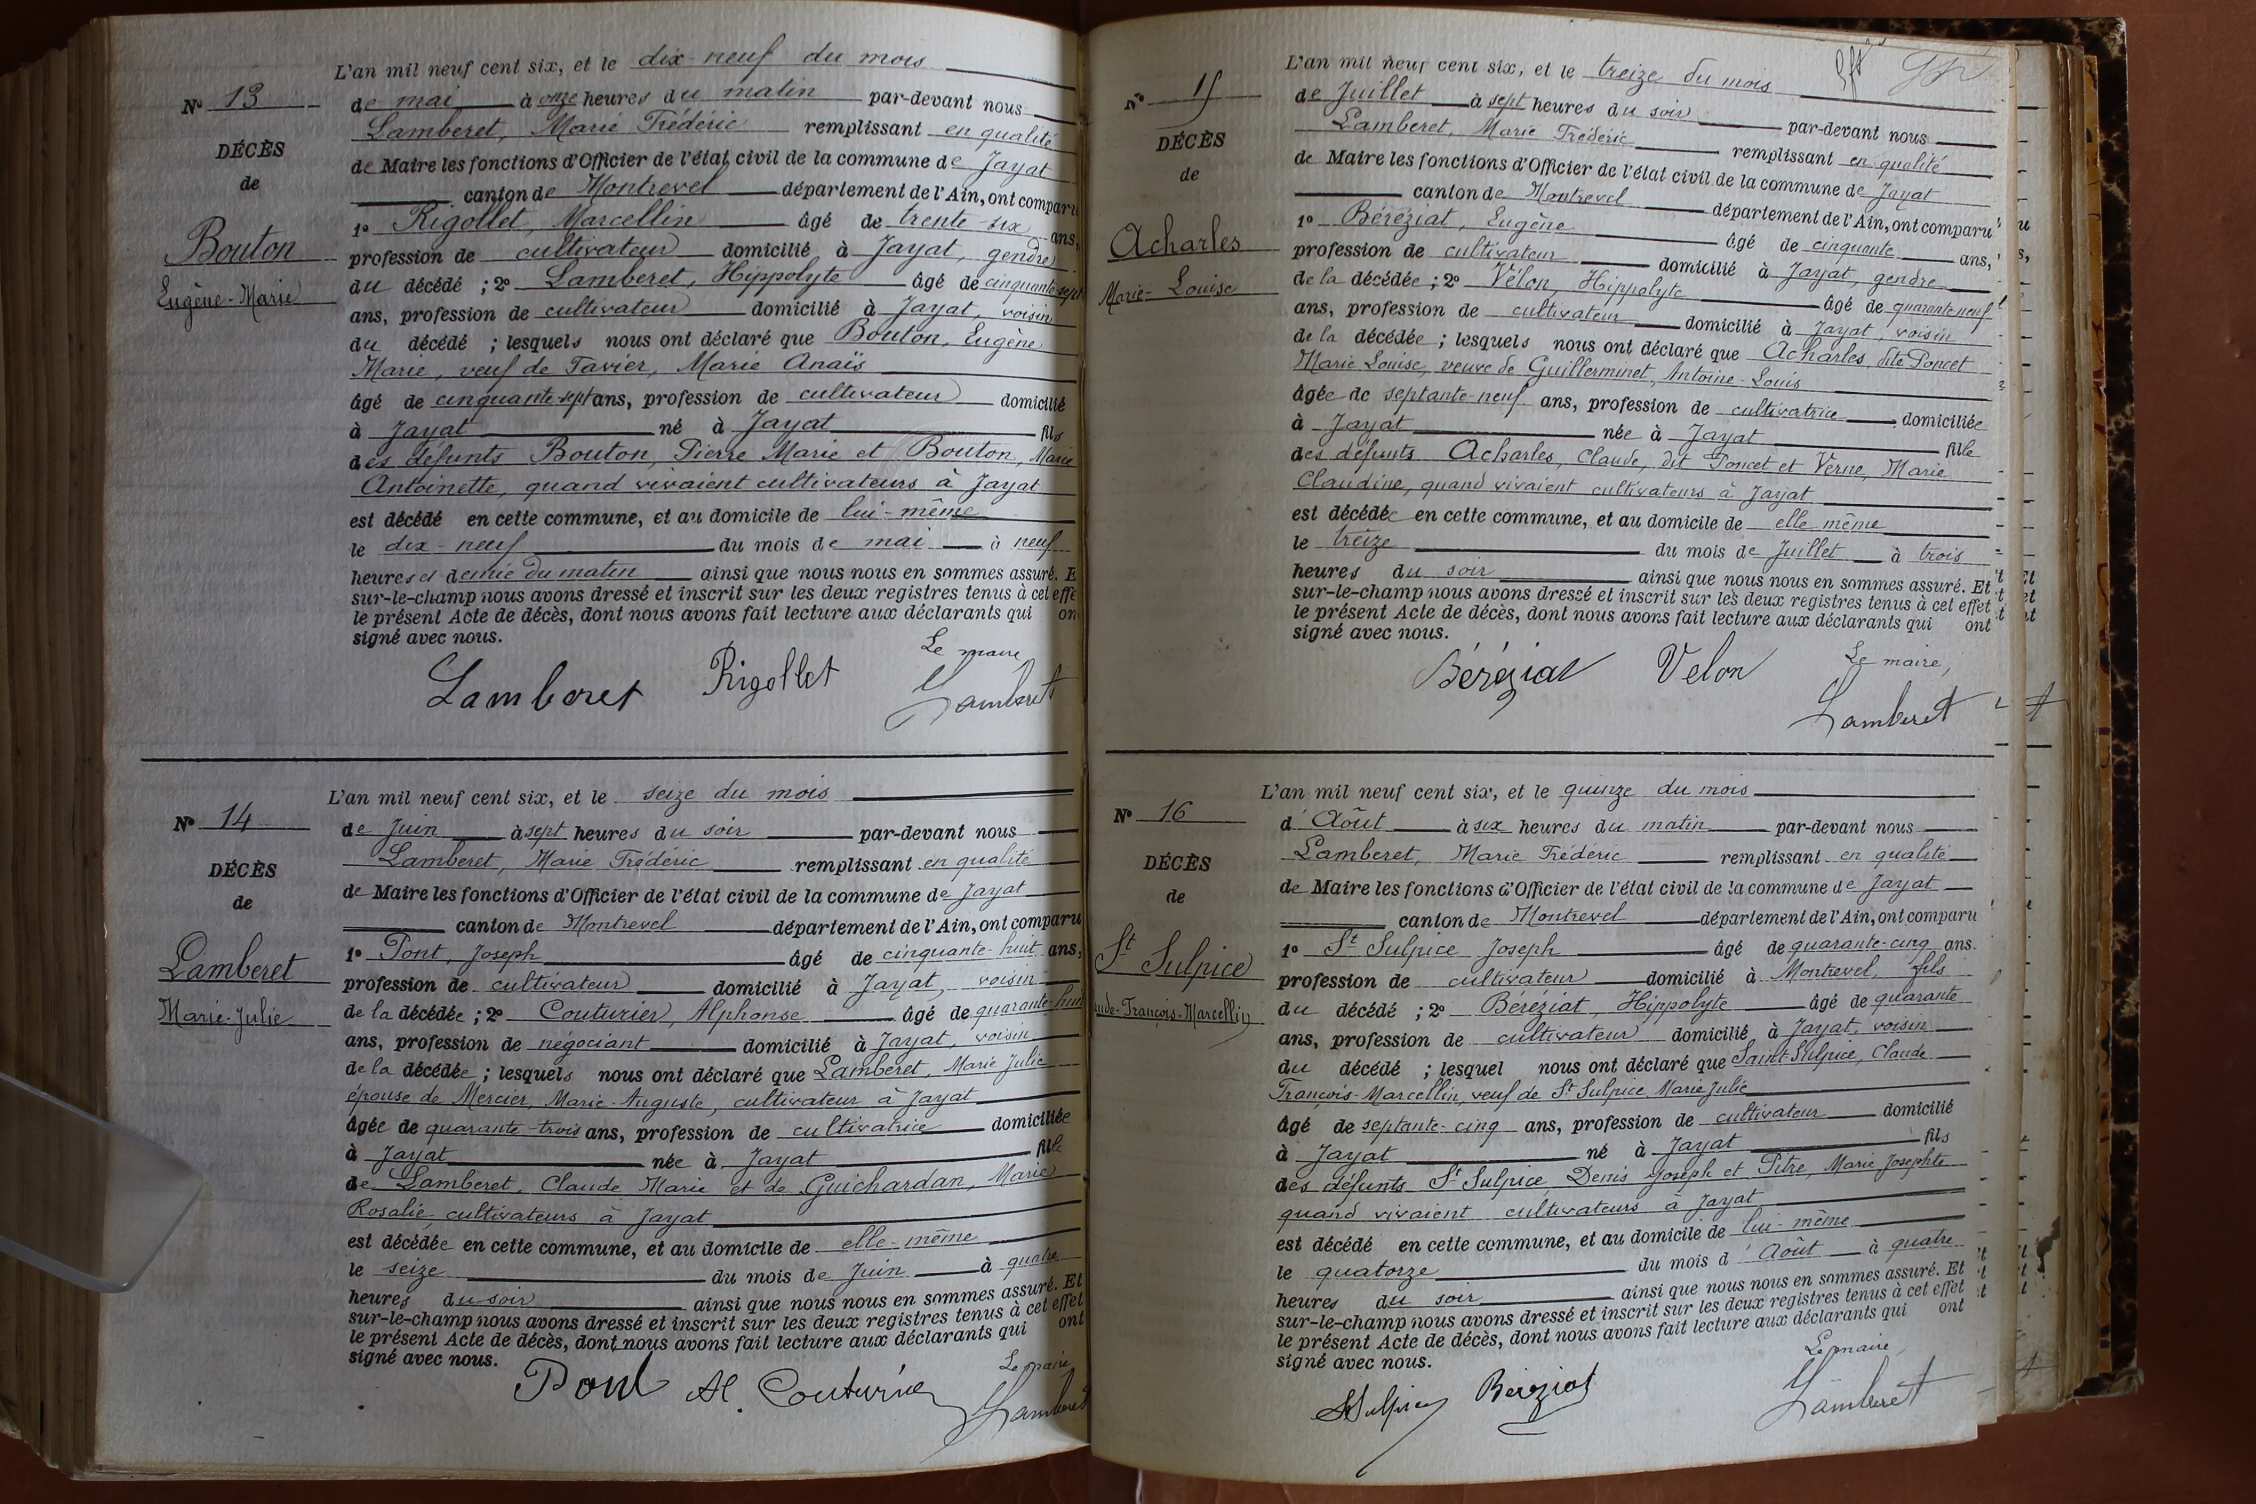 L'an mil neuf cent six, et le dix-neuf du mois
N° 13
de mai à onze heures du matin par-devant nous
Lamberet, Marie Frédéric remplissant en qualité
DÉCÈS
de Maire les fonctions d'Officier de l'état civil de la commune de Jayat
de
canton de Montrevel département de l'Ain, ont comparu
1° Rigollet, Marcellin âgé de trente-six ans,
Bouton
profession de cultivateur domicilié à Jayat, gendre
Eugène-Marie
du décédé ; 2° Lamberet, Hippolyte âgé de cinquante-sept
ans, profession de cultivateur domicilié à Jayat, voisin
du décédé ; lesquels nous ont déclaré que Bouton, Eugène
Marie, veuf de Favier, Marie Anaïs
âgé de cinquante-sept ans, profession de cultivateur domicilié
à Jayat né à Jayat fils
des défunts Bouton, Pierre Marie et Bouton, Marie
Antoinette, quand vivaient cultivateurs à Jayat
est décédé en cette commune, et au domicile de lui-même
le dix-neuf du mois de mai à neuf
heures et demie du matin ainsi que nous nous en sommes assuré. E
sur-le-champ nous avons dressé et inscrit sur les deux registres tenus à cet effe
le présent Acte de décès, dont nous avons fait lecture aux déclarants qui on
signé avec nous.
Le maire
Lamberet Rigollet Lamberet
L'an mil neuf cent six, et le seize du mois
N° 14
de Juin à sept heures du soir par-devant nous
Lamberet, Marie Frédéric remplissant en qualité
DÉCÈS
de Maire les fonctions d'Officier de l'état civil de la commune de Jayat
de
canton de Montrevel département de l'Ain, ont comparu
1° Pont, Joseph âgé de cinquante-huit ans,
Lamberet
profession de cultivateur domicilié à Jayat, voisin
Marie-Julie
de la décédée ; 2° Couturier, Alphonse âgé de quarante-huit
ans, profession de négociant domicilié à Jayat, voisin
de la décédée ; lesquels nous ont déclaré que Lamberet, Marie Julie
épouse de Mercier, Marie-Auguste, cultivateur à Jayat
âgée de quarante-trois ans, profession de cultivatrice domiciliée
à Jayat née à Jayat fille
de Lamberet, Claude Marie et de Guichardan, Marie
Rosalie cultivateurs à Jayat
est décédée en cette commune, et au domicile de elle-même
le seize du mois de Juin à quatre
heures du soir ainsi que nous nous en sommes assuré. Et
sur-le-champ nous avons dressé et inscrit sur les deux registres tenus à cet effet
le présent Acte de décès, dont nous avons fait lecture aux déclarants qui ont
signé avec nous.
Le maire
Pont Al. Couturier Lamberet
L'an mil neuf cent six, et le treize du mois
N° 15
de Juillet à sept heures du soir par-devant nous
Lamberet, Marie Frédéric remplissant en qualité
DÉCÈS
de Maire les fonctions d'Officier de l'état civil de la commune de Jayat
de
canton de Montrevel département de l'Ain, ont comparu
1° Béréziat, Eugène âgé de cinquante ans,
Acharles
profession de cultivateur domicilié à Jayat, gendre
Marie-Louise
de la décédée ; 2° Vélon, Hippolyte âgé de quarante neuf
ans, profession de cultivateur domicilié à Jayat, voisin
de la décédée ; lesquels nous ont déclaré que Acharles, dite Poncet
Marie Louise, veuve de Guillerminet, Antoine-Louis
âgée de septante-neuf ans, profession de cultivatrice domiciliée
à Jayat née à Jayat fille
des défunts Acharles, Claude, dit Poncet et Verne, Marie
Claudine, quand vivaient cultivateurs à Jayat
est décédée en cette commune, et au domicile de elle même
le treize du mois de Juillet à trois
heures du soir ainsi que nous nous en sommes assuré. Et
sur-le-champ nous avons dressé et inscrit sur les deux registres tenus à cet effet
le présent Acte de décès, dont nous avons fait lecture aux déclarants qui ont
signé avec nous.
Le maire,
Béréziat Velon Lamberet
L'an mil neuf cent six, et le quinze du mois
N° 16
d'Août à six heures du matin par-devant nous
Lamberet, Marie Frédéric remplissant en qualité
DÉCÈS
de Maire les fonctions d'Officier de l'état civil de la commune de Jayat
de
canton de Montrevel département de l'Ain, ont comparu
1° St Sulpice Joseph âgé de quarante-cinq ans.
St Sulpice
profession de cultivateur domicilié à Montrevel, fils
ude-François-Marcellin
du décédé ; 2° Béréziat, Hippolyte âgé de quarante
ans, profession de cultivateur domicilié à Jayat, voisin
du décédé ; lesquel nous ont déclaré que Saint Sulpice, Claude
François-Marcellin, veuf de St Sulpice Marie Julie
âgé de septante-cinq ans, profession de cultivateur domicilié
à Jayat né à Jayat fils
des défunts St Sulpice, Denis Joseph et Pitre, Marie Josephte
quand vivaient cultivateurs à Jayat
est décédé en cette commune, et au domicile de lui-même
le quatorze du mois d'Août à quatre
heures du soir ainsi que nous nous en sommes assuré. Et
sur-le-champ nous avons dressé et inscrit sur les deux registres tenus à cet effet
le présent Acte de décès, dont nous avons fait lecture aux déclarants qui ont
signé avec nous.
Le maire,
St Sulpice Béréziat Lamberet